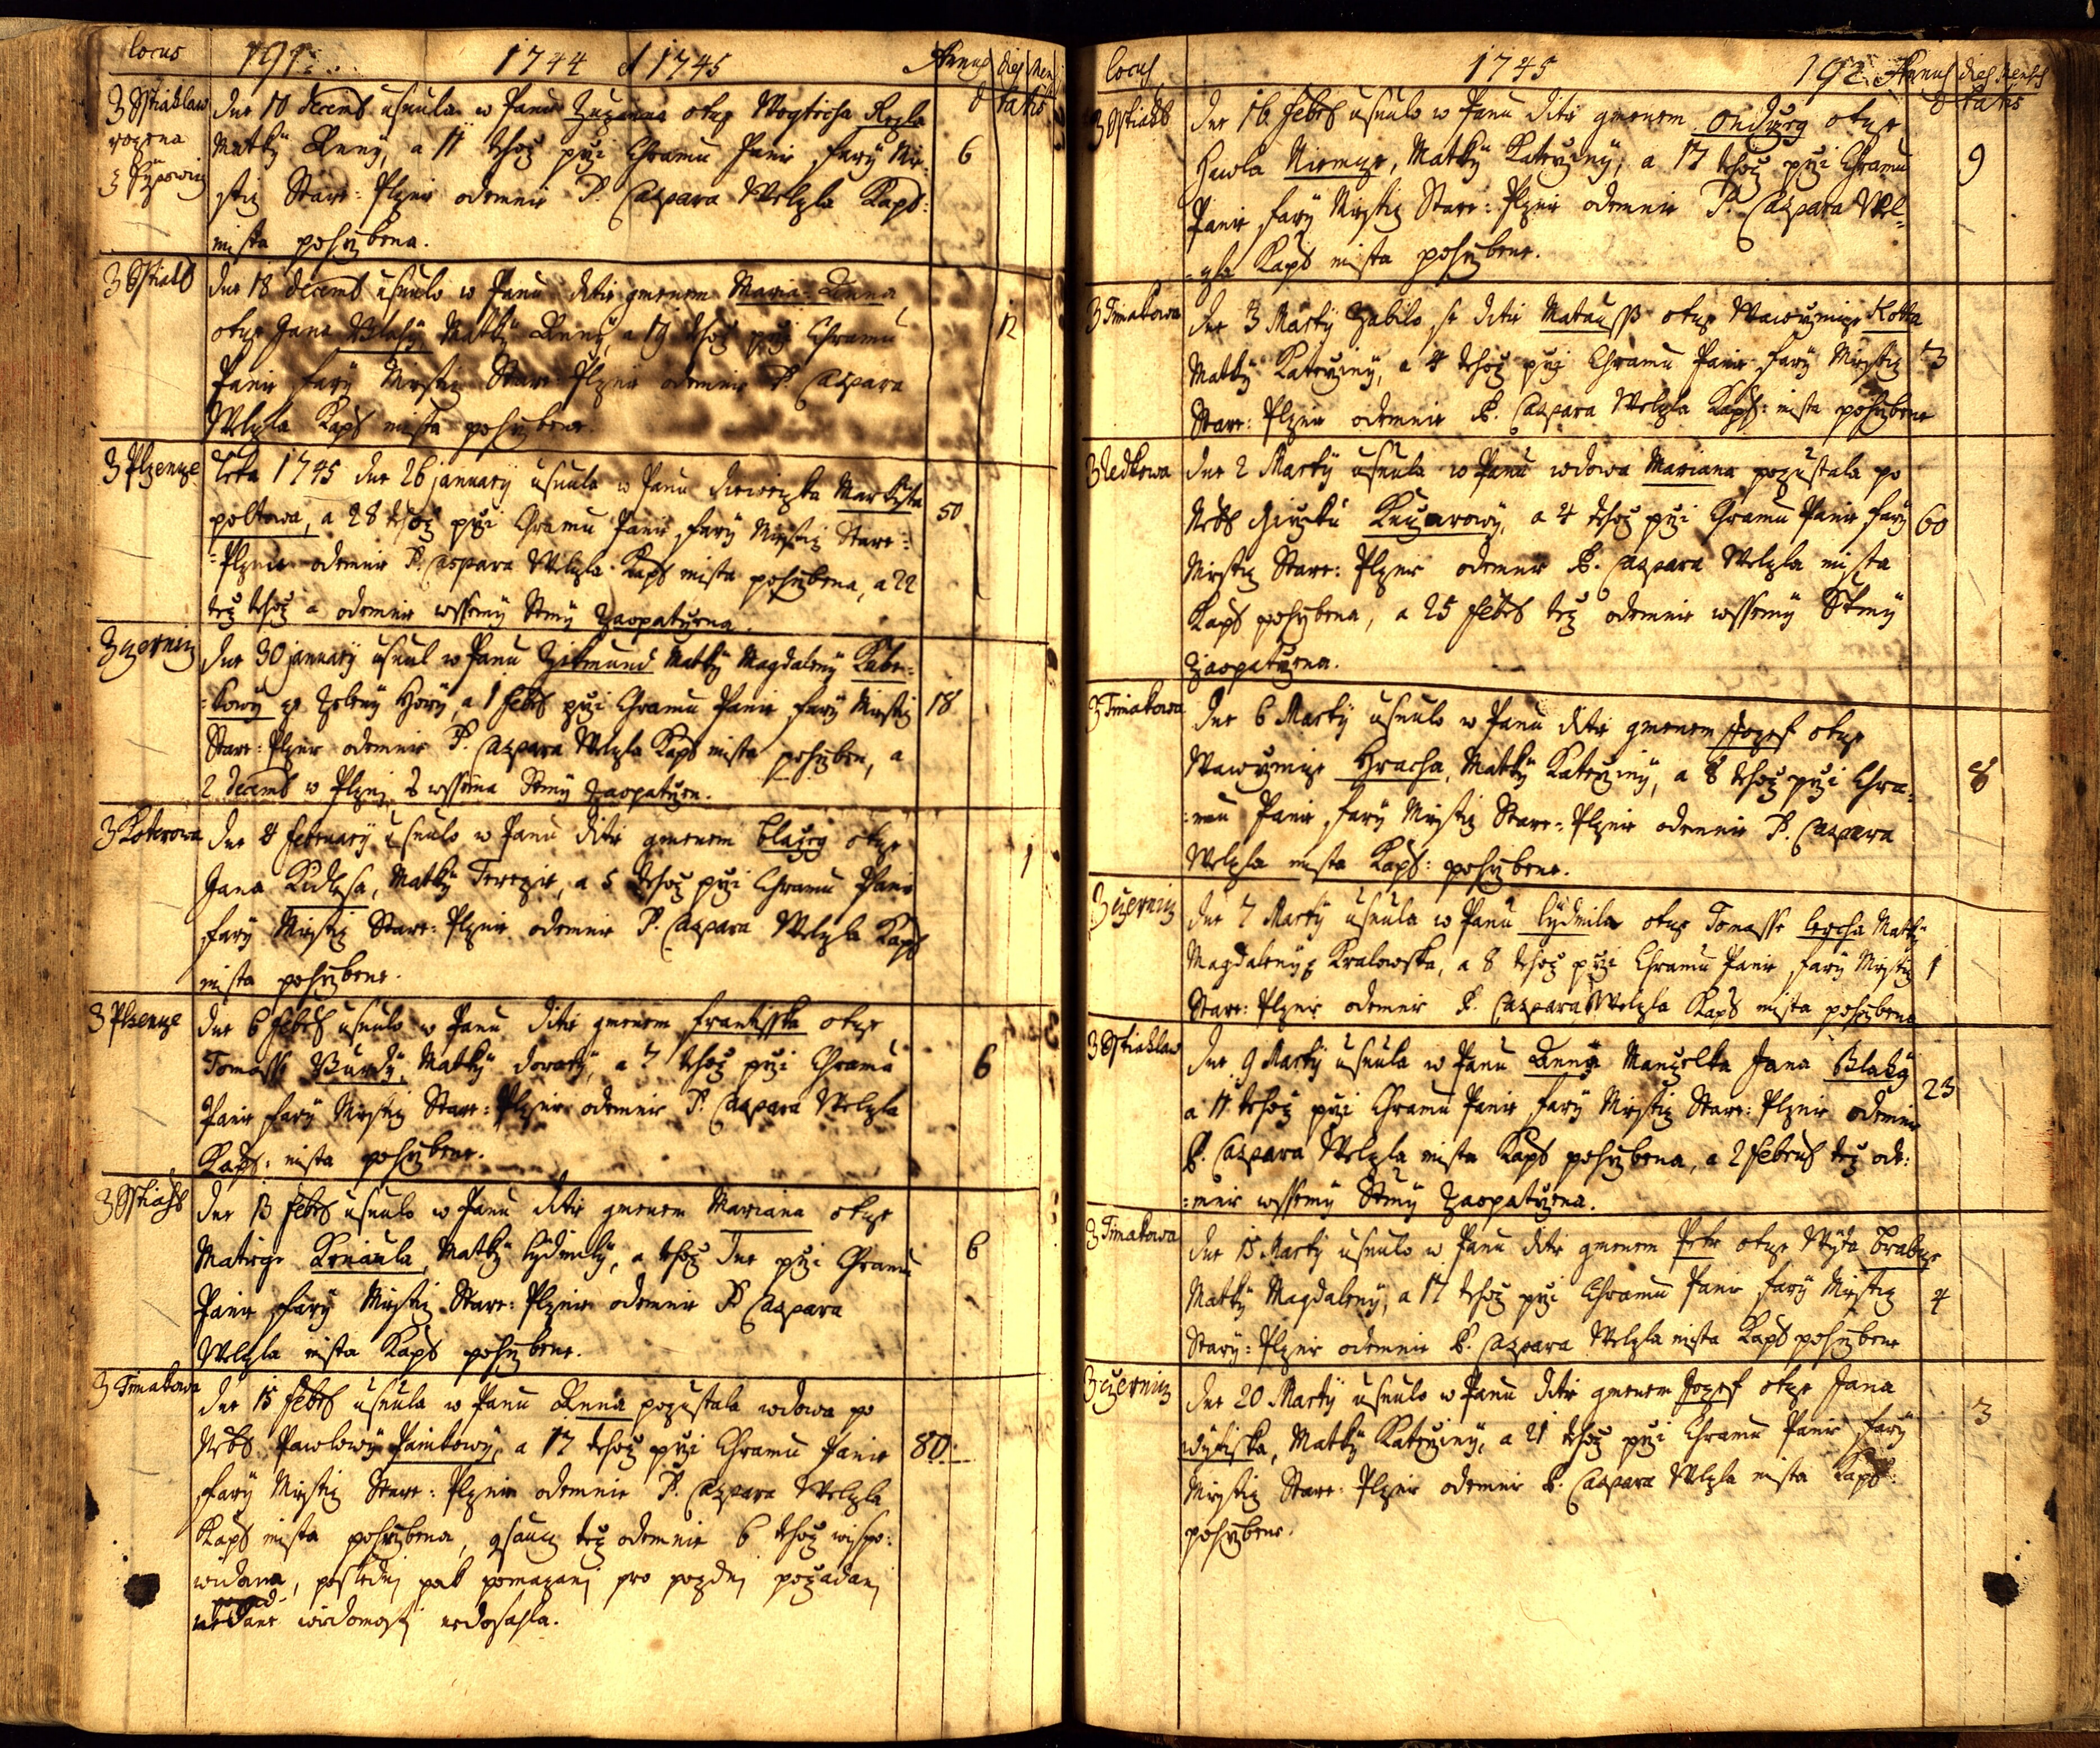 locus 191 1744 et 1745 Annus dies Men
Ætatis
Z Sstiahlaw
rozena
z
dne 10 decemb usnula w Panu Zuzanna otcze Wogticha
Matky Anny, a 11 tehoz przi Chramu Panie fary Mie-
stiz Stare: Plznie odemnie P. Caspara Welzla Kapl:
mista pohrzbena.
6
Z Sstiahl
dne 18 decemb usnulo w Panu ditie gmenem Maria-Anna
otcze Jana Blahy Matky Anny, a 19 tehoz przi Chramu
Panie fary Miestiz Stare Plznie odemnie P. Caspara
Welzla Kapl mista pohrzbene.
12
Z Plzencze
Letha 1745 dne 26 january usnula w Panu diewcizka Markyta
poltowa, a 28 tehoz przi Chramu Panie fary Miestiz Stare:
=Plznie odemnie P. Caspara Welzla Kapl mista pohrzbena, a 22
tez tehoz a odemnie wssemy Stmy zaopatrzena.
50
Z czerniz
dne 30 january usnul w Panu Zikmund Matky Magdaleny
ze Zeleny Hory, a 1 Febr przi Chramu Panie fary Miestiz
Stare: Plznie odemnie P. Caspara Welzla Kapl mista pohrzben, a
2 decemb w Plzni s wssema Stmy zaopatrzen.
18
Z Koterowa
dne 4 february usnulo w Panu ditie gmenem Blazey otcze
Jana Matky Terezie, a 5 tehoz przi Chramu Panie
fary Miestiz Stare: Plznie odemnie P. Caspara Welzla Kapl
mista pohrzbene.
1
Z Plzencze
dne 6 Febr usnulo w Panu ditie gmenem frantisska otcze
Tomasse Burdy, Matky doraty, a 7 tehoz przi Chramu
Panie fary Miestiz Stare: Plznie odemnie P. Caspara Welzla
Kapl: mista pohrzbene.
6
Z Sstiahl
dne 13 Febr usnulo w Panu ditie gmenem Mariana otcze
Matiege Matky Lydmily, a tehoz dne przi Chramu
Panie fary Miestiz Stare: Plznie odemnie P Caspara
Welzla mista Kapl pohrzbene.
6
Z Timakowa
dne 15 Febr usnula w Panu Anna pozustala wdowa po
Nebs Pawlowy a 17 tehoz przi Chramu Panie
fary Miestiz Stare: Plznie odemnie P. Caspara Welzla
Kapl mista pohrzbena, gsaucz tez odemnie 6 tehoz wispo:
widana, posledni pak pomazani pro pozdni pozadani
nedosahla.
80
locus 1745 192 Annus dies Mensis
Ætatis
Z Sstiahl
dne 16 Febr usnulo w Panu ditie gmenem Ondrzeg otcze
Hawla Niemcze, Matky Katerziny, a 17 tehoz przi Chramu
Panie fary Miestiz Stare: Plznie odemnie P. Caspara Wel-
=zla Kapl mista pohrzbene.
9
Z Timakowa
dne 3 Marty Zabilo se ditie Matauss otcze Wawrzincze Kotta
Matky Katerziny, a 4 tehoz przi Chramu Panie fary Miestiz
Stare: Plznie odemnie P. Caspara Welzla Kapl: mista pohrzbene
3
Z Sedkowa
dne 2 Marty usnula w Panu wdowa Mariana pozustala po
Nebs a 4 tehoz przi Chramu Panie fary
Miestiz Stare: Plznie odemnie P. Caspara Welzla mista
Kapl pohrzbena, a 25 Febr tez odemnie wssemy Stmy
Zaopatrzena.
60
Z Timakowa
dne 6 Marty usnulo w Panu ditie gmenem Jozef otcze
Wawrzincze Hracha, Matky Katerziny, a 8 tehoz przi Chra:
:mu Panie fary Miestiz Stare: Plznie odemnie P. Caspara
Welzla mista Kapl: pohrzbene.
8
Z czerniz
dne 7 Marty usnula w Panu Lydmila otcze Tomasse Matky
Magdaleny a 8 tehoz przi Chramu Panie fary Miestiz
Stare: Plznie odemnie P. Caspara Welzla Kapl mista pohrzbena
1
Z Sstiahlaw
dne 9 Marty usnula w Panu Anna Manzelka Jana Blahy
a 11 tehoz przi Chramu Panie fary Miestiz Stare: Plznie odemnie
P. Caspara Welzla mista Kapl pohrzbena, a 2 Februs tez ode:
:mnie wssemy Stmy Zaopatrzena.
23
Z Timakowa
dne 15 Marty usnulo w Panu ditie gmenem Petr otcze Wyta
Matky Magdaleny, a 17 tehoz przi Chramu Panie fary Miestiz
Stary: Plznie odemnie P. Caspara Welzla mista Kapl pohrzbene
4
Z czerniz
dne 20 Marty usnulo w Panu ditie gmenem Jozef otcze Jana
Matky Katerziny, a 21 tehoz przi Chramu Panie fary
Miestiz Stare: Plznie odemnie P. Caspara Welzla mista Kapl
pohrzbene.
3